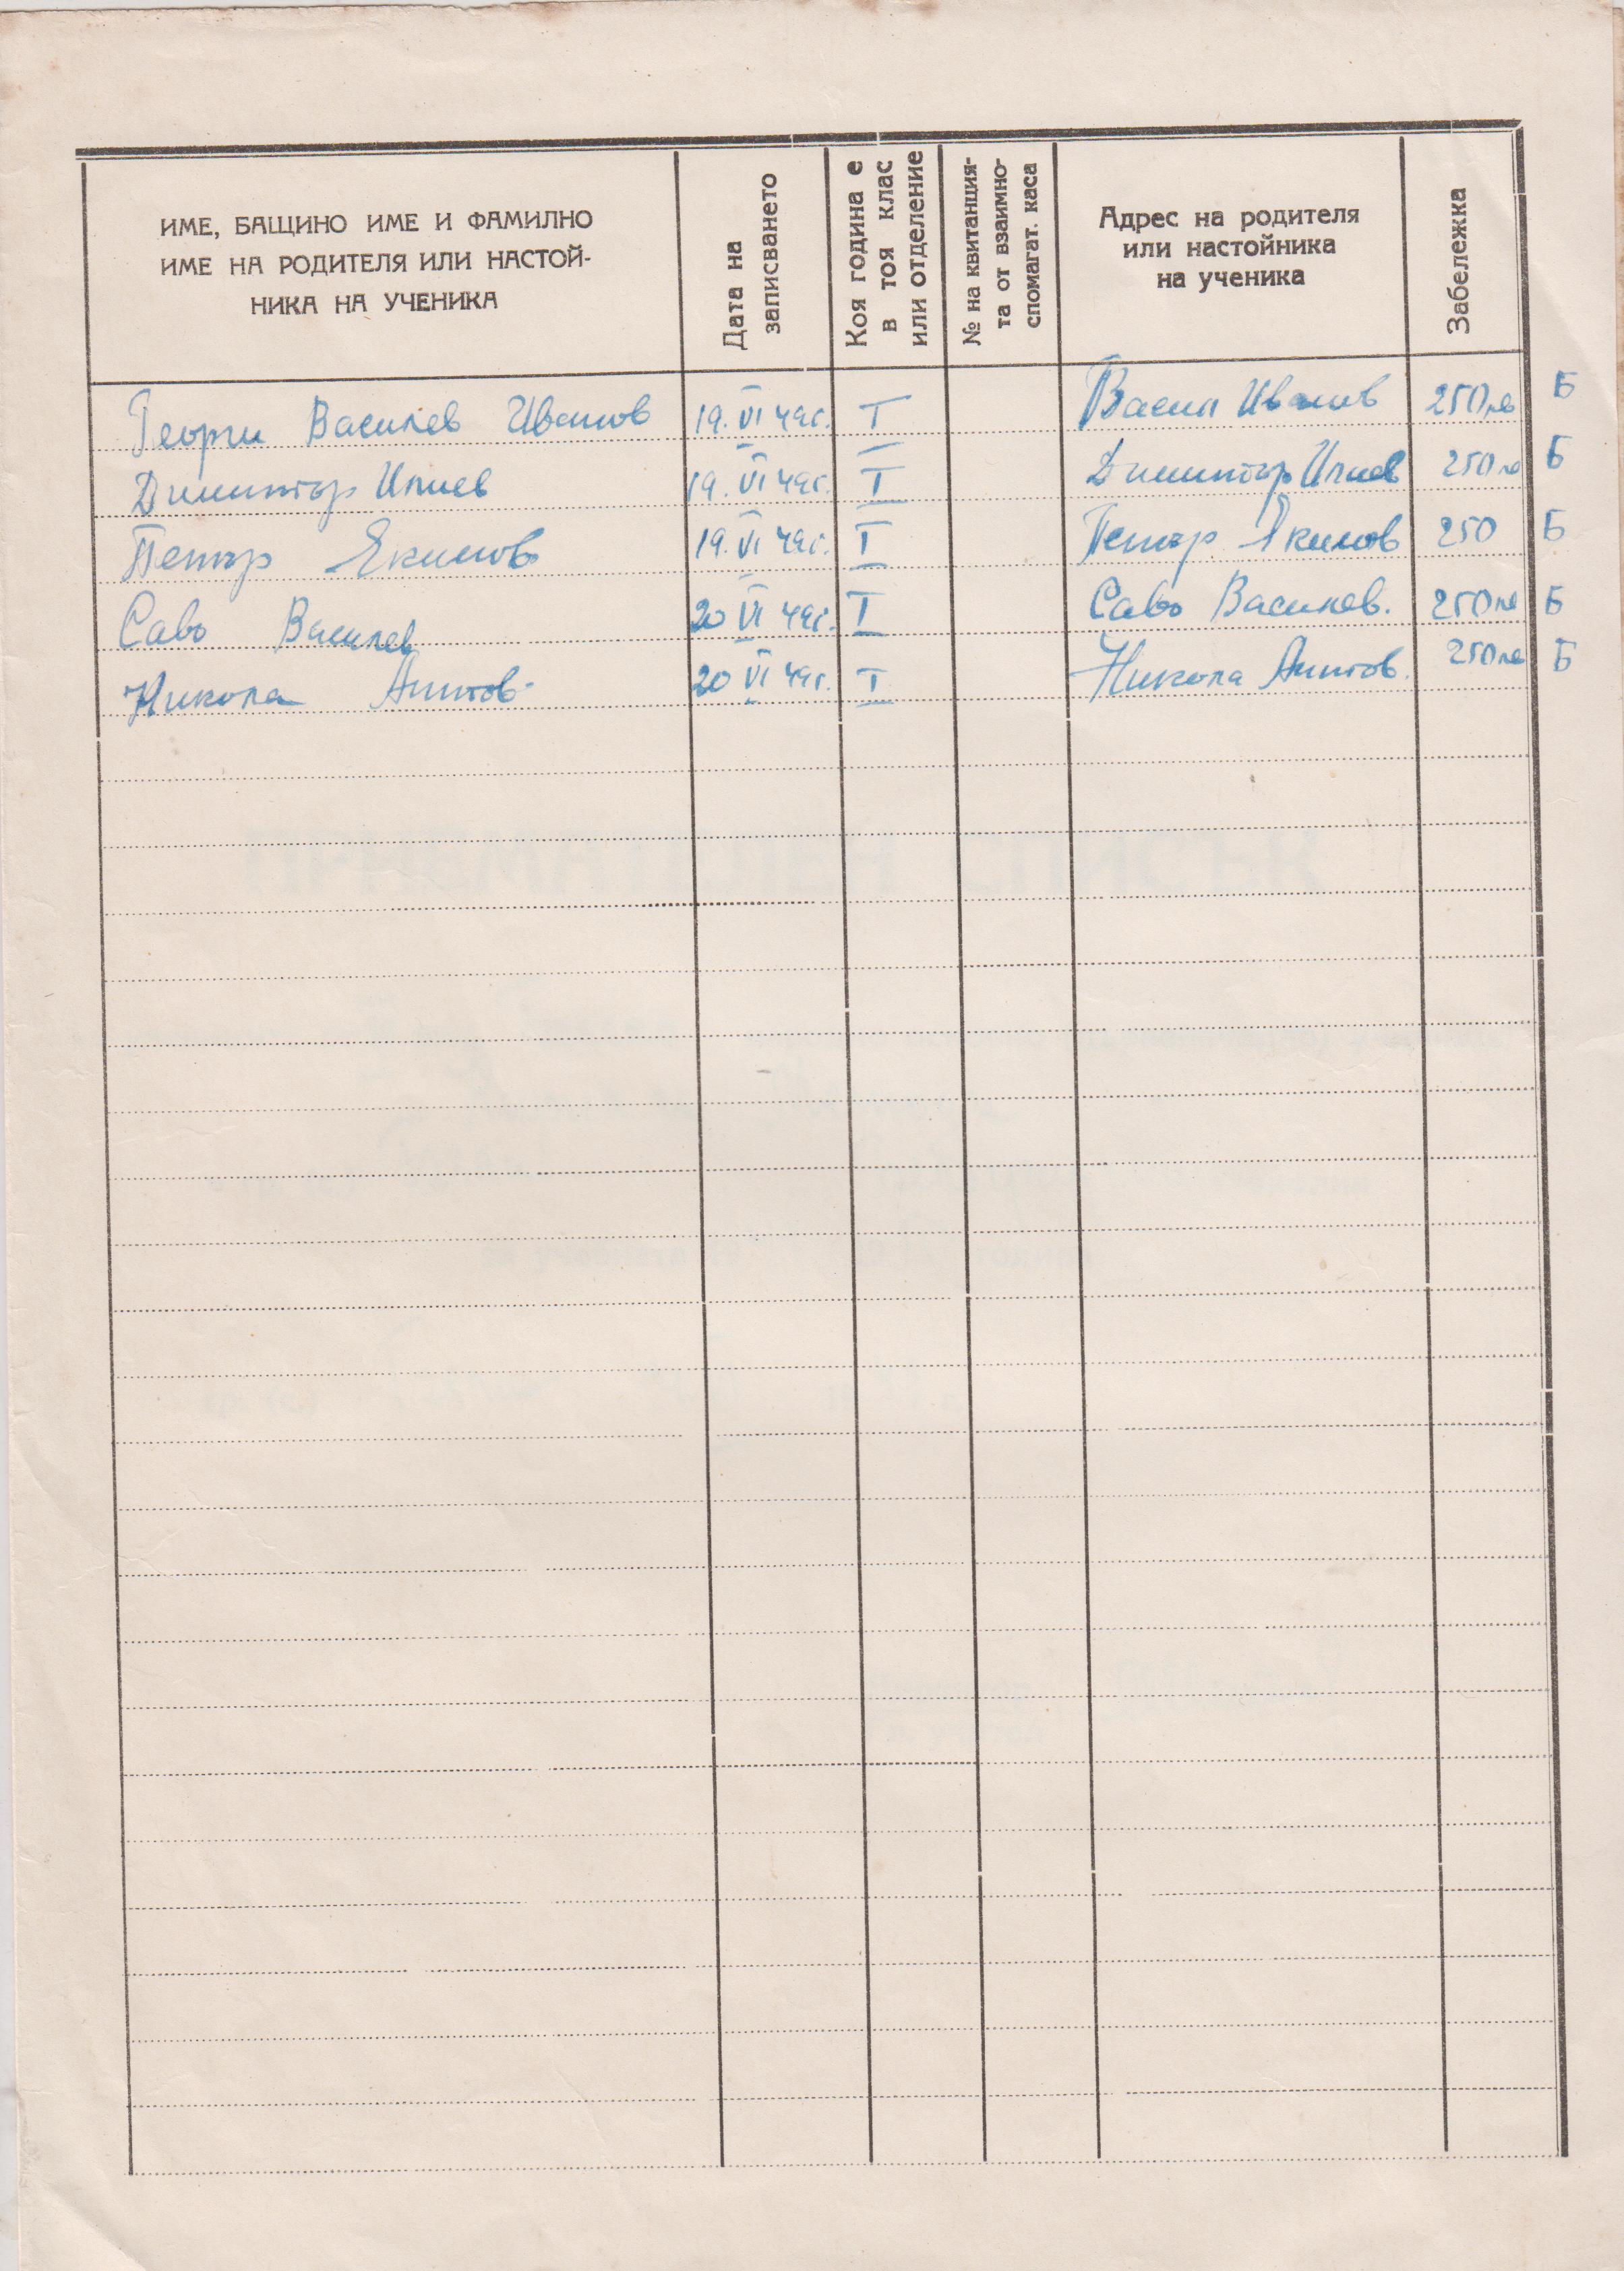 ИМЕ, БАЩИНО ИМЕ И ФАМИЛНО
ИМЕ НА РОДИТЕЛЯ ИЛИ НАСТОЙ-
НИКА НА УЧЕНИКА
Дата на
записването
Коя година е
в тоя клас
или отделение
№ на квитанция-
та от взаимно-
спомагат. каса
Адрес на родителя
или настойника
на ученика
Забележка
Георги Василев Иванов 19. VI 49г. I Васил Иванов 250 лв Б
Димитър Илиев 19. VI 49г. I Димитър Илиев 250 лв Б
Петър Якимов 19. VI 49г. I Петър Якимов 250 Б
Саво Василев 20 VI 49г. I Саво Василев. 250 лв Б
Никола Антов 20 VI 49г. I Никола Антов. 250 лв Б